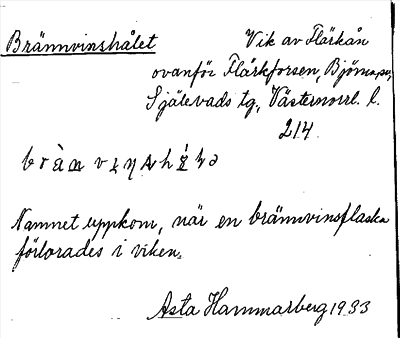 Brännvinshålet
Vik av Flärkån
ovanför Flärkforsen, Björna sn,
Själevads tg, Västernorrl. l.
214.
Namnet uppkom, när en brännvinsflaska
förlorades i viken.
Asta Hammarberg 1933